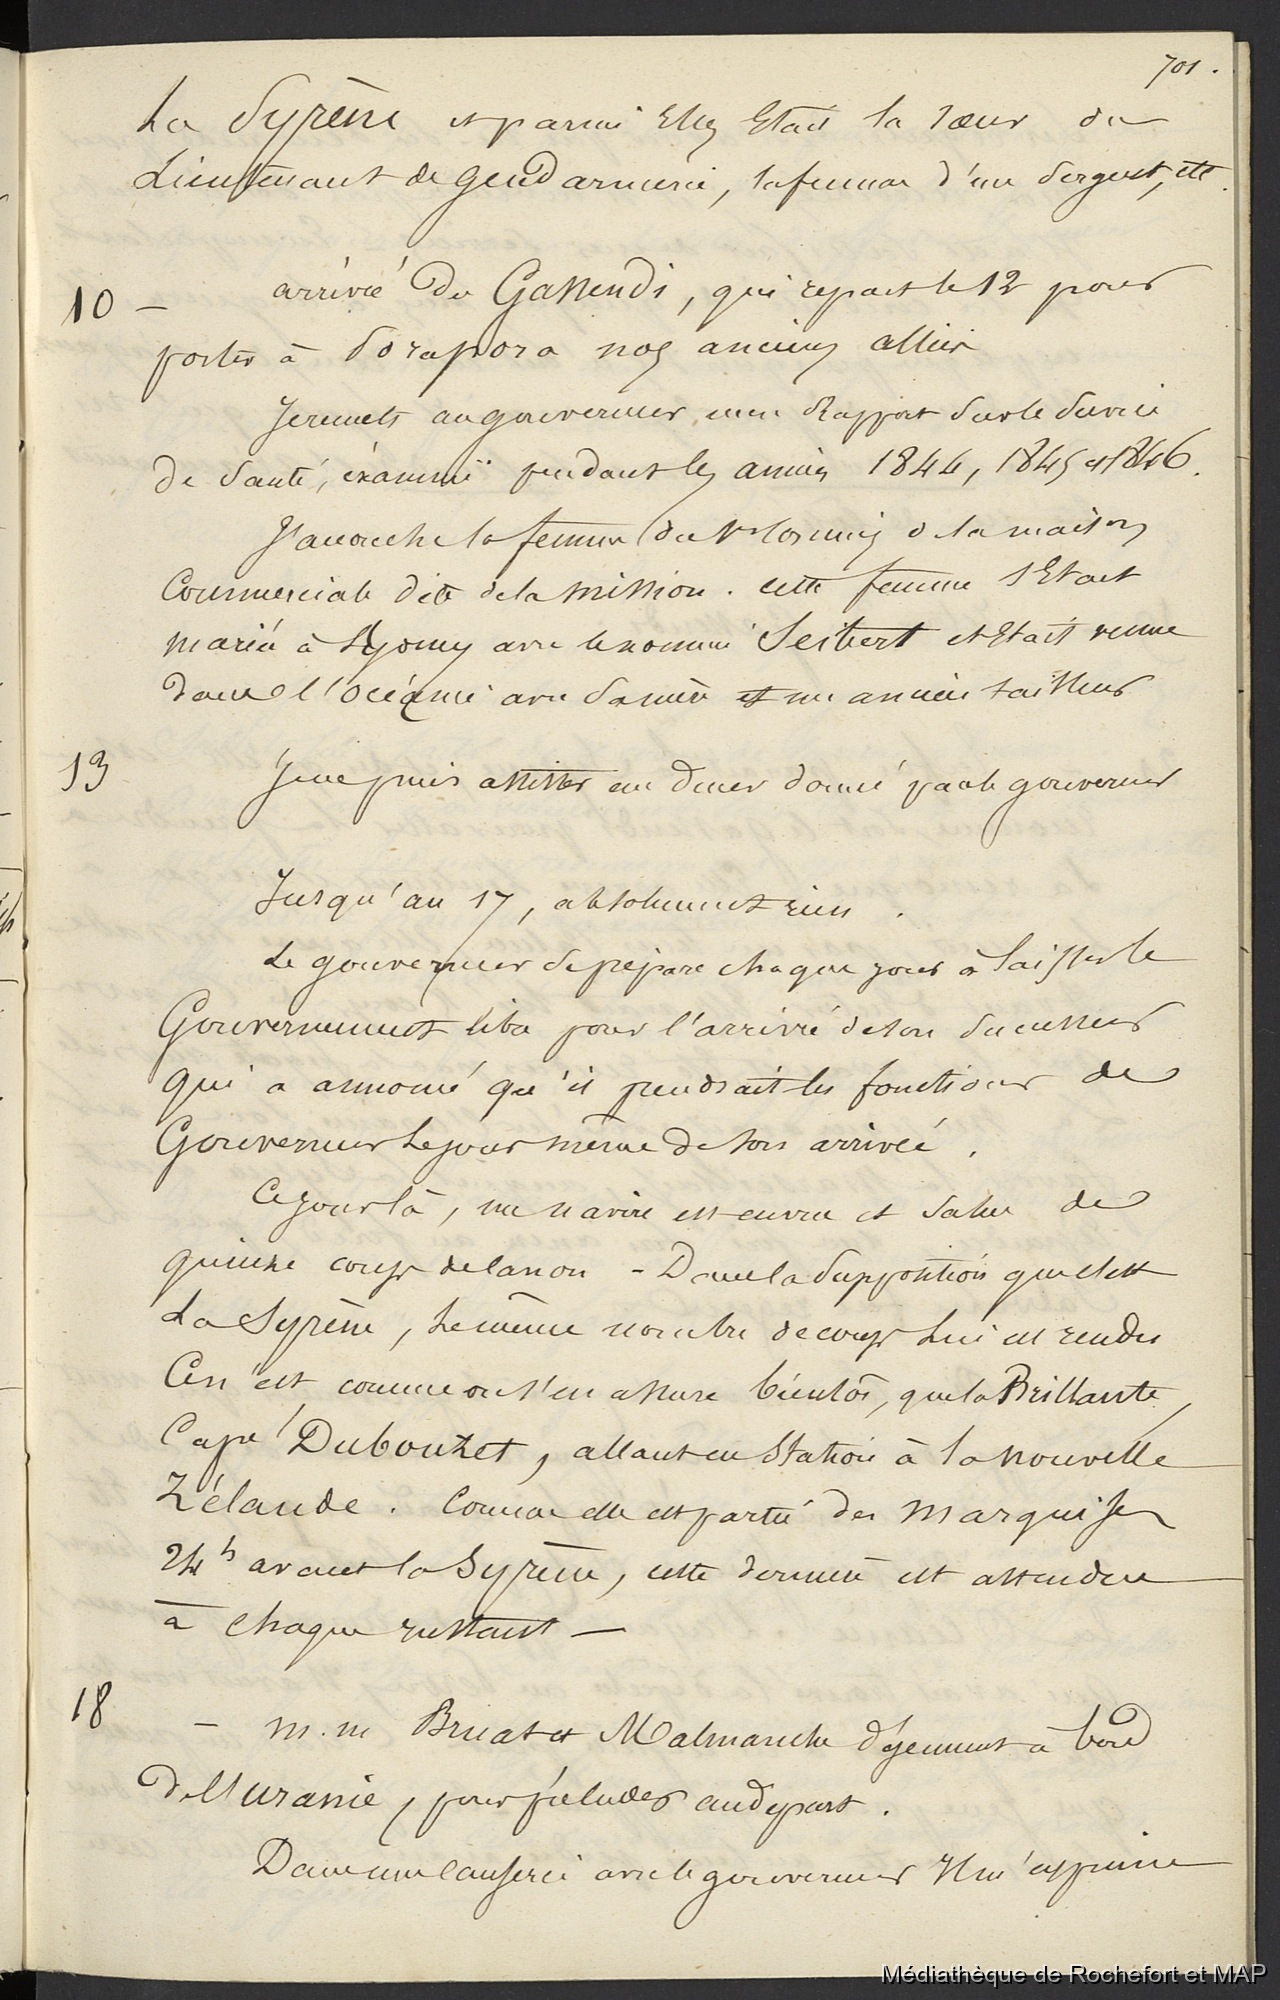 701.
La Syrène et parmi Elles Etait la sœur du
Lieutenant de gendarmerie, la femme d'un sergent, etc.
10 – arrivée du Gassendi, qui repart le 12 pour
porter à Borapora nos anciens alliés
Je remets au gouverneur mon Rapport sur le service
de santé, examiné pendant les années 1844, 1845 et 1846.
J'accouche la femme du Mr de la maison
Commerciale dite de la Mission. cette femme s'Etait
mariée à Sydney avec le nommé Seibert et Etait venue
dans l'océanie avec sa mère et un ancien tailleur
13 Je ne puis assister au diner donné par le gouverneur
Jusqu'au 17, absolument rien.
Le gouverneur se prépare chaque jour à laisser le
Gouvernement libre pour l'arrivée de son successeur
qui a annoncé qu'il prendrait les fonctions de
Gouverneur le jour même de son arrivée.
Ce jour là, un navire est en vue et salue de
quinze coups de canon - Dans la supposition que c'est
La Syrène, le même nombre de coups lui est rendu
Ce n'est comme on s'en assure bientôt, que la Brillante,
Capne Dubouzet, allant en station à la nouvelle
Zélande. Comme elle est partie des marquises
24h avant la Syrène, cette dernière est attendue
à chaque instant –
18 – m.m Bruat et Malmanche déjeunent à bord
de l'uranie, pour préluder au départ.
Dans une causerie avec le gouverneur Il m'exprime
Médiathèque de Rochefort et MAP